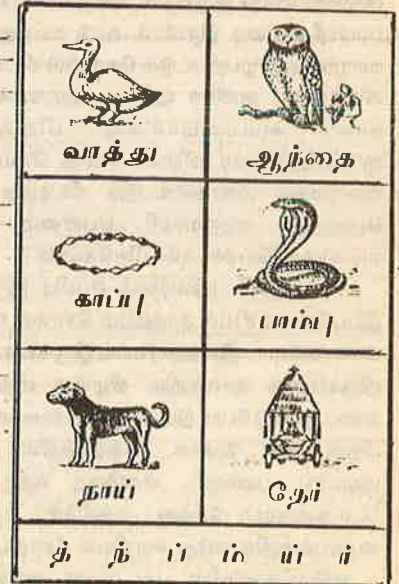 வாத்து ஆந்தை
காப்பு பாம்பு
நாய் தேர்
த் ந் ப் ம் ய் ர்